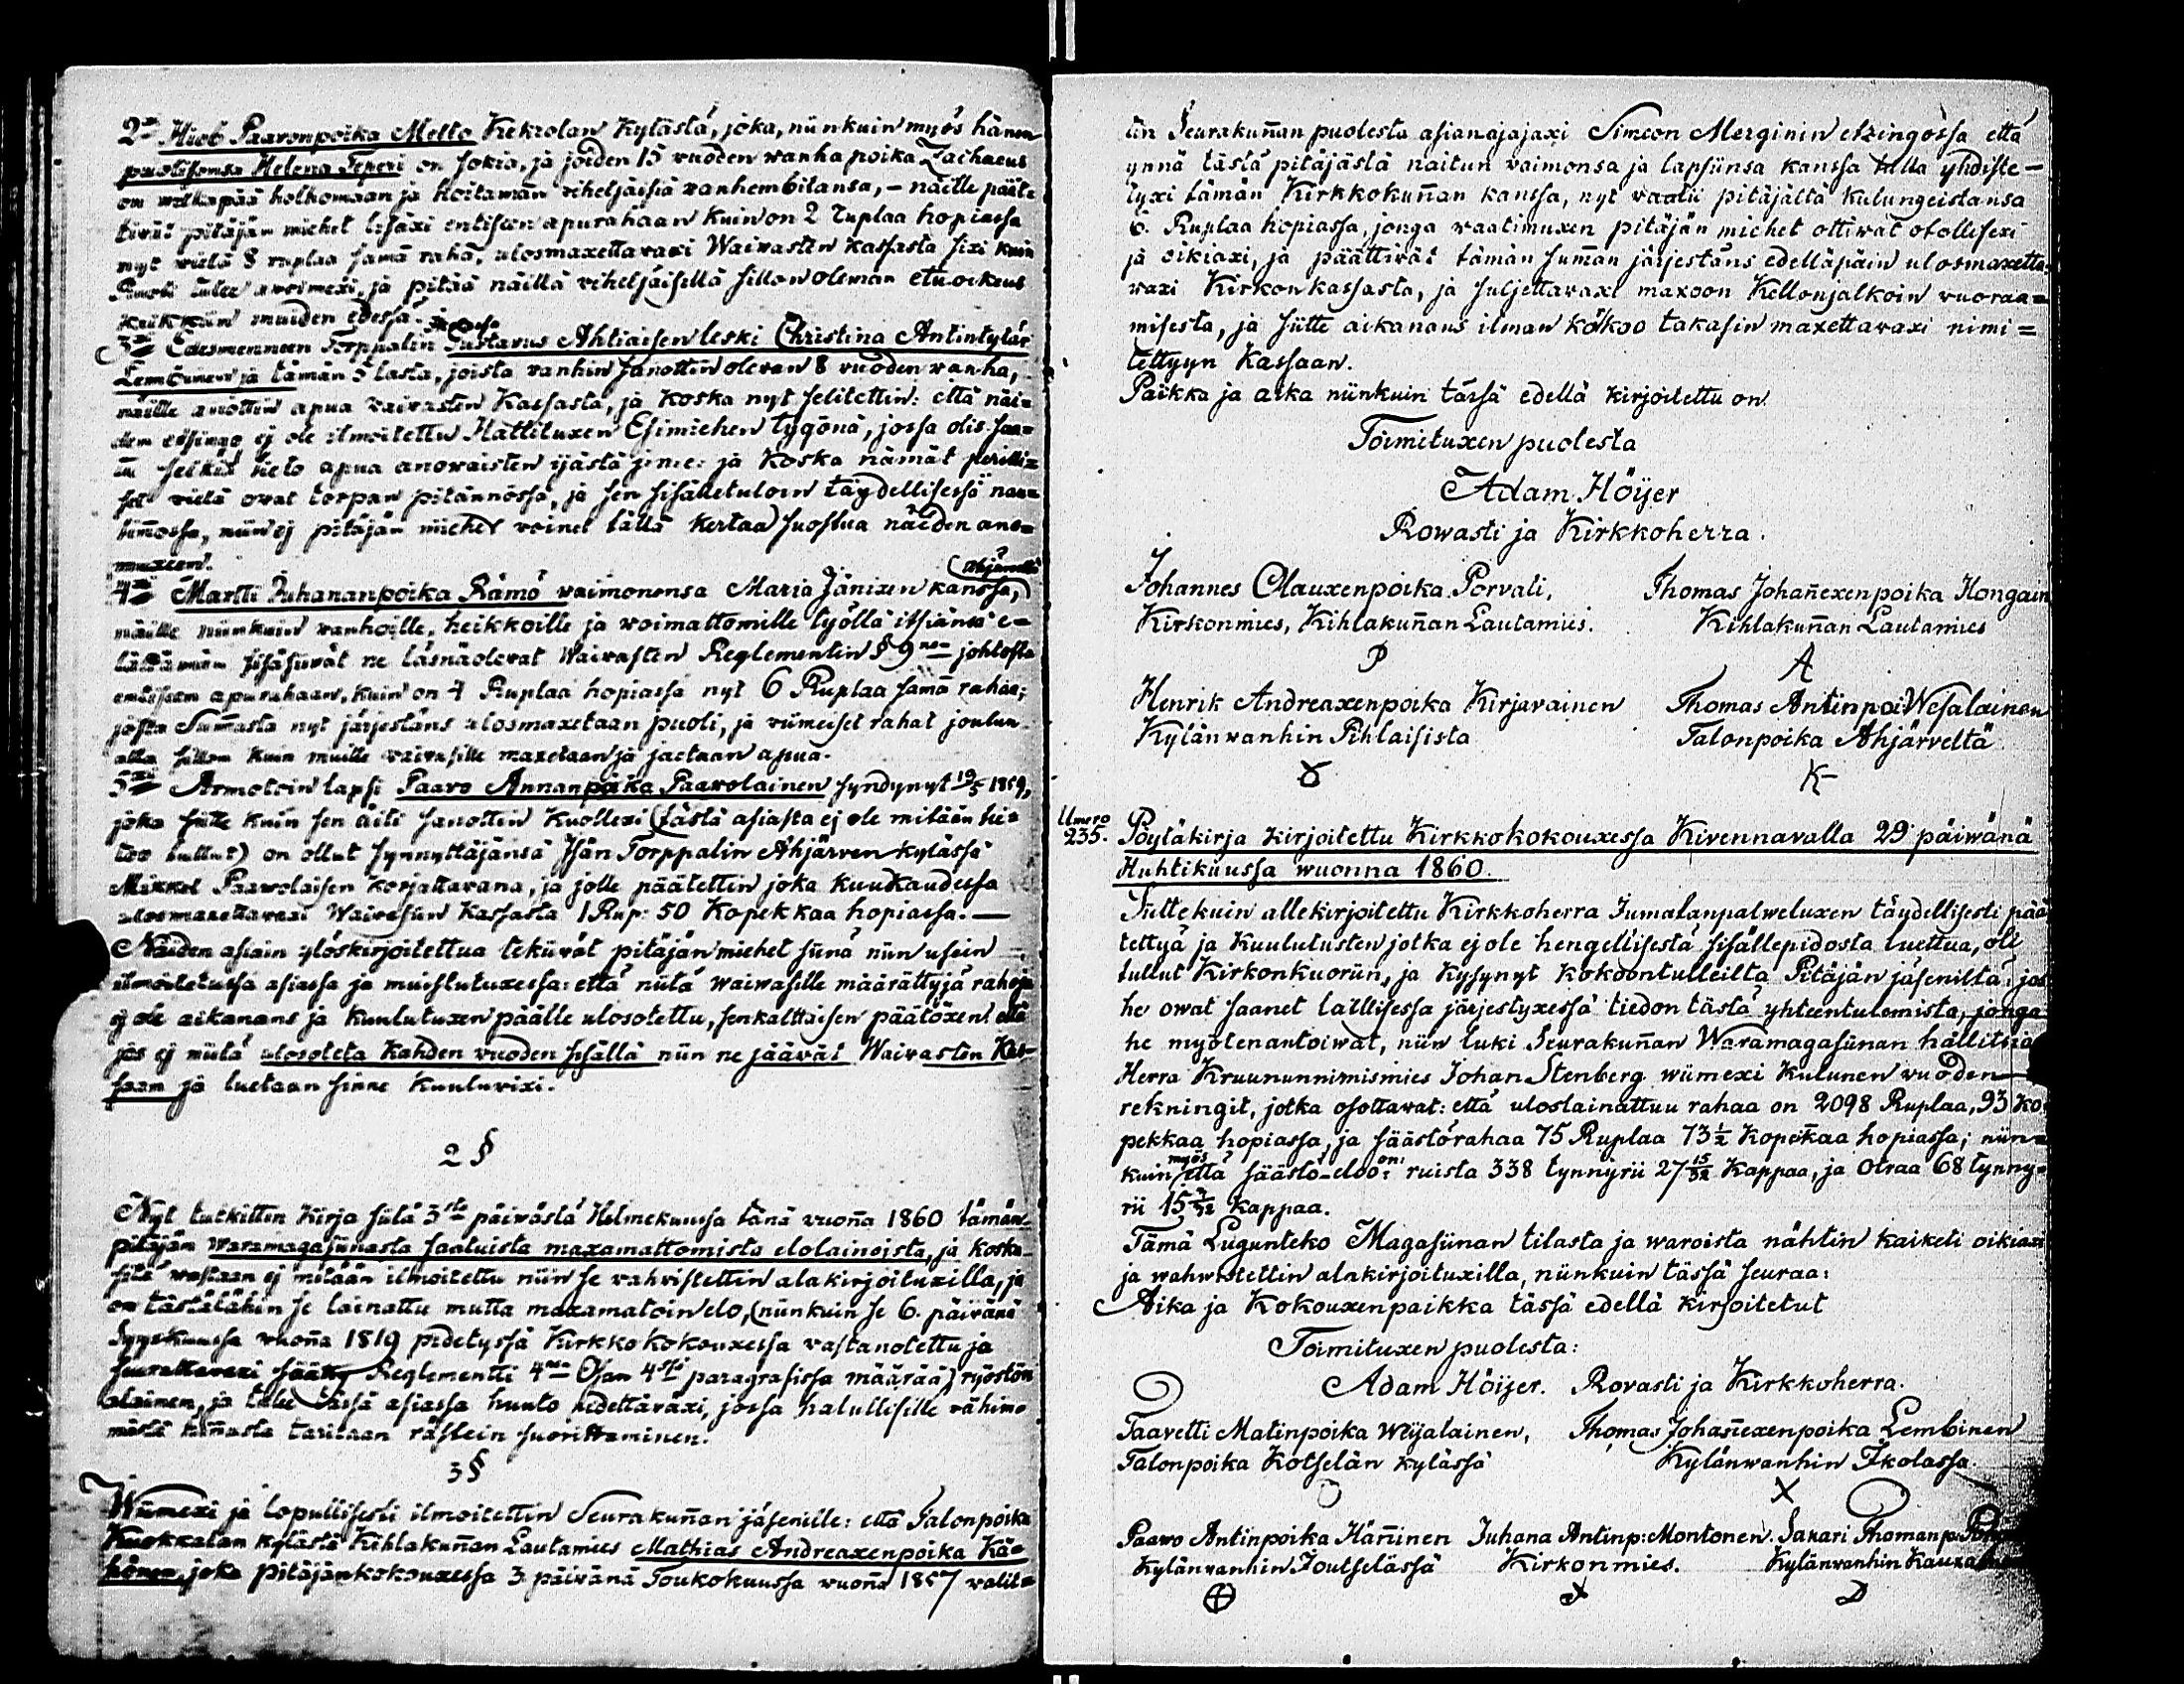 2xi Hiob Paavonpoika Melto Kekrolan Kylästä, joka, niinkuin myös hänen
puolisonsa Helena Teperi on sokia, ja joiden 15 vuoden vanha poika Zachaeus
on velkapää holhomaan ja hoitaman viheljäisiä vanhembitansa, – näille päät-
tivät pitäjän miehet lisäxi entiseen apurahaan kuin on 2 Ruplaa hopiassa
nyt vielä 8 ruplaa samā rahā, ulosmaxettavaxi Waivasten kassasta sixi kuin
Ruoti tulee avoimexi, ja pitää näillä viheljäisillä silloin oleman etuoikeus
kaikkein muiden edessä.
3xi Edesmenneen Torppalin Gustavus Ahtiaisen leski Christina Antintytär
Lembinen ja tämän 5 lasta, joista vanhin sanottin olevan 8 vuoden vanha,
näille anottin apua vaivasten Kassasta, ja koska nyt selitettin: että näi=
den etsingö ej ole ilmoitettu Hallituxen Esimiehen tygönä, jossa olis saa=
tu selkiä tieto apua anovaisten ijästä j: n: e: ja koska nämät perilli=
set vielä ovat torpan pitännössä, ja sen sisälletuloin täydellisessä nau=
tinnossa, niin ej pitäjän miehet voinet tällä kertaa suostua näiden ano=
muxeen.
4xi Martti Juhananpoika Rämö vaimonensa Maria Jänixen kanssa, (Ahjärveltä
näille niinkuin vanhoille, heikkoille ja voimattomille työllä itsiänsä e=
lättämän lisäsivät ne läsnäolevat Waivasten Reglementin § 9nen johtosta
entiseen apurahaan, kuin on 4 Ruplaa hopiassa nyt 6 Ruplaa samā rahaa;
josta Sumasta nyt järjestäns ulosmaxetaan puoli, ja viimeiset rahat joulun
alla silloin kuin muille vaivasille maxetaan ja jaetaan apua.
5xi Armotoin lapsi Paavo Annanpoika Paavolainen syndynyt 19/5 1859,
joka sitte kuin sen äiti sanottin kuollexi (tästä asiasta ej ole mitään tie=
too tullut) on ollut synnyttäjänsä Isän Torppalin Ahjärven kylässä
Mikkel Paavolaisen korjattavana, ja jolle päätettin joka kuukaudessa
ulosmaxettavaxi Waivasiin Kassasta 1 Rup: 50 Kopekkaa hopiassa. —
Näiden asiain ylöskirjoitettua tekivät pitäjän miehet siinä niin usein
ilmoitetussa asiassa ja muistutuxessa: että niitä waivasille määrättyjä rahoja
ej ole aikanans ja kuulutuxen päälle ulosotettu, senkalttaisen päätöxen: että
jos ej niitä ulosoteta kahden vuoden sisällä niin ne jäävät Waivasten Kas=
saan ja luetaan sinne kuuluvixi.
2 §
Nyt tutkittin Kirja siitä 3sta päivästä Helmekuussa tänä vuoña 1860 tämän
pitäjän waramagasiinasta saatuista maxamattomista elolainoista, ja koska
sitä vastaan ej mitään ilmoitettu niin se vahvistettin alakirjoituxilla, ja
on tästälähin se lainattu mutta maxamatoin elo, (niinkuin se 6. päivänä
Syyskuussa vuoña 1819 pidetyssä Kirkkokokouxessa vastanotettu ja
seurattavaxi säätty Reglementti 4nen Osan 4ssä paragrafissa määrää) ryöstön
alainen, ja tulee tässä asiassa huuto pidettäväxi, jossa halullisille vähim=
mästä hiñasta taritaan rästein suorittaminen.
3 §
Wiimexi ja lopullisesti ilmoitettin Seurakuñan jäsenille: että Talonpoika
Kuokkalan kylästä Kihlakuñan Lautamies Mathias Andreaxenpoika Kä=
hönen, joka pitäjänkokouxessa 3 päivänä Toukokuussa vuoña 1857 valit=
tiin Seurakuñan puolesta asianajajaxi Simeon Merginin etzingössa että
ynnä tästä pitäjästä naitun vaimonsa ja lapsiinsa kanssa tulla yhdiste=
tyxi tämän Kirkkokuñan kanssa, nyt vaatii pitäjältä kulungeistansa
6. Ruplaa hopiassa, jonga vaatimuxen pitäjän miehet ottiwat otollisexi
ja oikiaxi, ja päättivät tämän suman järjestäns edelläpäin ulosmaxetta=
vaxi Kirkonkassasta, ja suljettavaxi maxoon Kellonjalkoin vuoraa=
misesta, ja siitte aikanans ilman kökoo takasin maxettavaxi nimi=
tettyyn Kassaan.
Paikka ja aika niinkuin tässä edellä kirjoitettu on.
Toimituxen puolesta
Adam Höijer
Rowasti ja Kirkkoherra.
Johannes Clauxenpoika Porvali, Thomas Johañexenpoika Hongain
Kirkonmies, Kihlakuñan Lautamies. Kihlakuñan Lautamies
P A
Henrik Andreaxenpoika Kirjavainen Thomas Antinpoi Wesalainen
Kylänvanhin Pihlaisista Talonpoika Ahjärveltä
K
Umero
235. Pöytäkirja kirjoitettu Kirkkokokouxessa Kivennavalla 29 päiwänä
Huhtikuussa wuonna 1860.
Siittekuin allekirjoitettu Kirkkoherra Jumalanpalweluxen täydellisesti pää
tettyä ja Kuulutusten jotka ej ole hengellisestä sisällepidosta luettua, oli
tullut Kirkonkuoriin, ja kysynyt kokoontulleilta Pitäjän jäseniltä: jos
he owat saanet laillisessa järjestyxessä tiedon tästä yhteentulemista, jonga
he myötenantoiwat, niin luki Seurakuñan Waramagasiinan hallitsia
Herra Kruununnimismies Johan Stenberg wiimexi kulunen vuoden
rekningit, jotka osottavat: että uloslainattuu rahaa on 2098 Ruplaa, 93 Ko
pekkaa hopiassa, ja säästörahaa 75 Ruplaa 73½ Kopekaa hopiassa; niin=
kuin myös että säästö-eloo: on ruista 338 tynnyrii 27 15/32 Kappaa, ja Otraa 68 tynny=
rii 15 7/32 Kappaa.
Tämä Lugunteko Magasiinan tilasta ja waroista nähtin kaiketi oikiaxi
ja wahwistettin alakirjoituxilla, niinkuin tässä seuraa:
Aika ja Kokouxenpaikka tässä edellä kirjoitetut
Toimituxen puolesta:
Adam Höijer. Rovasti ja Kirkkoherra.
Taavetti Matinpoika Wijalainen, Thomas Johañexenpoika Lembinen
Talonpoika Kotselän kylässä Kylänwanhin Ikolassa.
X
Paavo Antinpoika Häñinen Juhana Antinp: Montonen. Sakari Thomanp:
Kylänvanhin Joutselässä Kirkonmies. Kylänvanhin
D